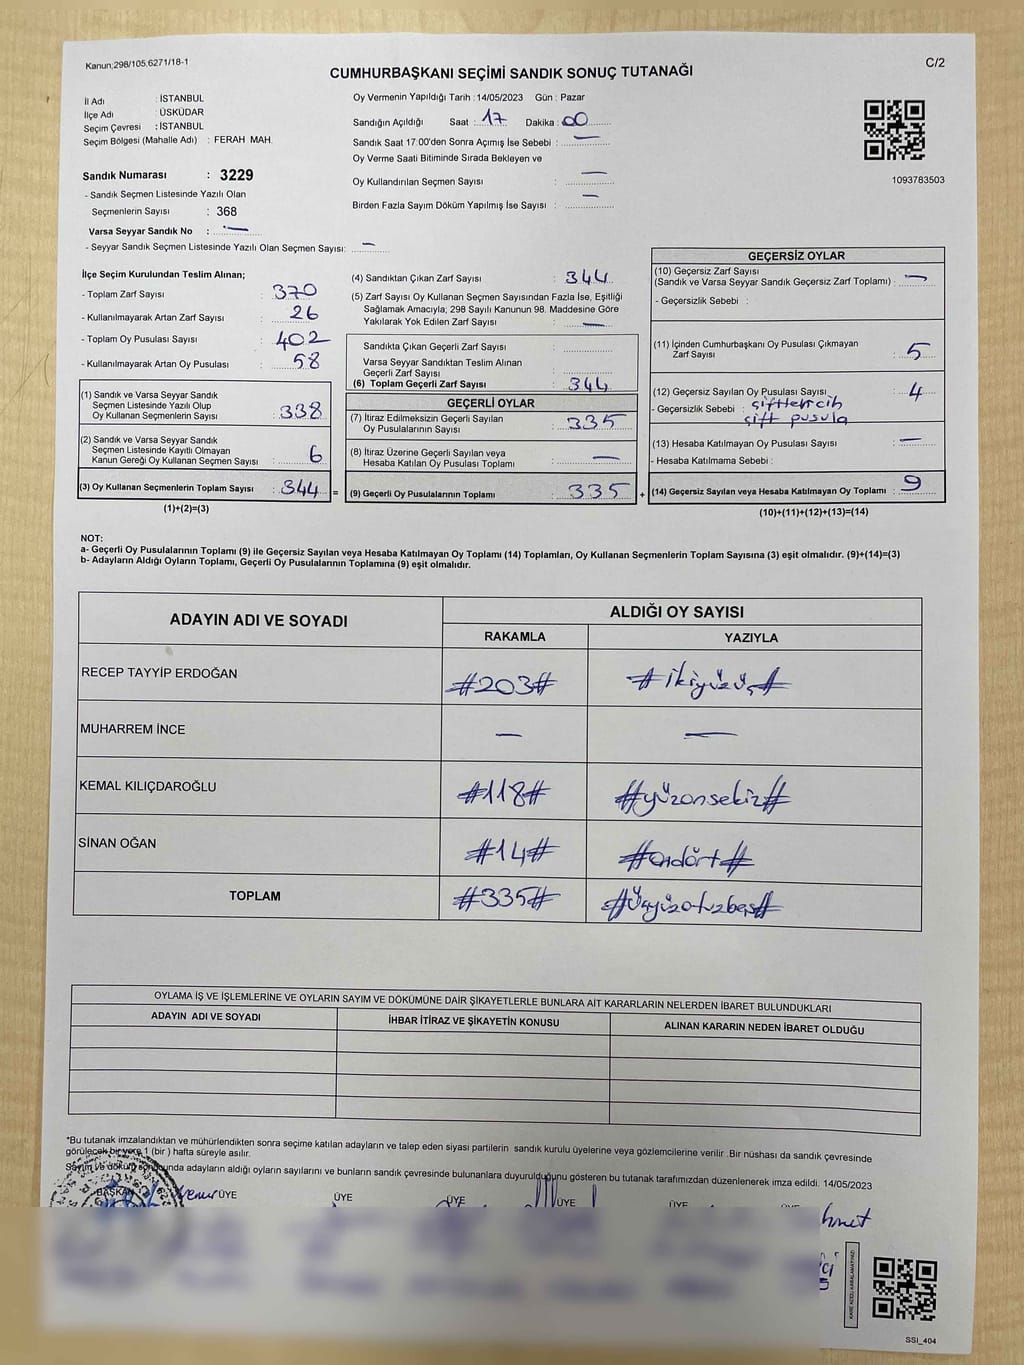 Kanun;298/105,6271/18-1
C/2
CUMHURBAŞKANI SEÇİMİ SANDIK SONUÇ TUTANAĞI
İl Adı : İSTANBUL
İlçe Adı : ÜSKÜDAR
Seçim Çevresi : İSTANBUL
Seçim Bölgesi (Mahalle Adı) : FERAH MAH.
Sandık Numarası : 3229
- Sandık Seçmen Listesinde Yazılı Olan
Seçmenlerin Sayısı : 368
Varsa Seyyar Sandık No : —
- Seyyar Sandık Seçmen Listesinde Yazılı Olan Seçmen Sayısı: —
Oy Vermenin Yapıldığı Tarih : 14/05/2023 Gün : Pazar
Sandığın Açıldığı Saat : 17 Dakika : 00
Sandık Saat 17:00'den Sonra Açımış İse Sebebi : —
Oy Verme Saati Bitiminde Sırada Bekleyen ve
Oy Kullandırılan Seçmen Sayısı : —
Birden Fazla Sayım Döküm Yapılmış İse Sayısı : —
1093783503
İlçe Seçim Kurulundan Teslim Alınan;
- Toplam Zarf Sayısı : 370
- Kullanılmayarak Artan Zarf Sayısı : 26
- Toplam Oy Pusulası Sayısı : 402
- Kullanılmayarak Artan Oy Pusulası : 58
(1) Sandık ve Varsa Seyyar Sandık
Seçmen Listesinde Yazılı Olup
Oy Kullanan Seçmenlerin Sayısı : 338
(2) Sandık ve Varsa Seyyar Sandık
Seçmen Listesinde Kayıtlı Olmayan
Kanun Gereği Oy Kullanan Seçmen Sayısı : 6
(3) Oy Kullanan Seçmenlerin Toplam Sayısı : 344 =
(1)+(2)=(3)
(4) Sandıktan Çıkan Zarf Sayısı : 344
(5) Zarf Sayısı Oy Kullanan Seçmen Sayısından Fazla İse, Eşitliği
Sağlamak Amacıyla; 298 Sayılı Kanunun 98. Maddesine Göre
Yakılarak Yok Edilen Zarf Sayısı : —
Sandıkta Çıkan Geçerli Zarf Sayısı :
Varsa Seyyar Sandıktan Teslim Alınan
Geçerli Zarf Sayısı :
(6) Toplam Geçerli Zarf Sayısı : 344
GEÇERLİ OYLAR
(7) İtiraz Edilmeksizin Geçerli Sayılan
Oy Pusulalarının Sayısı : 335
(8) İtiraz Üzerine Geçerli Sayılan veya
Hesaba Katılan Oy Pusulası Toplamı : —
(9) Geçerli Oy Pusulalarının Toplamı : 335 +
GEÇERSİZ OYLAR
(10) Geçersiz Zarf Sayısı
(Sandık ve Varsa Seyyar Sandık Geçersiz Zarf Toplamı) : —
- Geçersizlik Sebebi :
(11) İçinden Cumhurbaşkanı Oy Pusulası Çıkmayan
Zarf Sayısı : 5
(12) Geçersiz Sayılan Oy Pusulası Sayısı : 4
- Geçersizlik Sebebi :
çift pusula
(13) Hesaba Katılmayan Oy Pusulası Sayısı : —
- Hesaba Katılmama Sebebi :
(14) Geçersiz Sayılan veya Hesaba Katılmayan Oy Toplamı : 9
(10)+(11)+(12)+(13)=(14)
NOT:
a- Geçerli Oy Pusulalarının Toplamı (9) ile Geçersiz Sayılan veya Hesaba Katılmayan Oy Toplamı (14) Toplamları, Oy Kullanan Seçmenlerin Toplam Sayısına (3) eşit olmalıdır. (9)+(14)=(3)
b- Adayların Aldığı Oyların Toplamı, Geçerli Oy Pusulalarının Toplamına (9) eşit olmalıdır.
ADAYIN ADI VE SOYADI
ALDIĞI OY SAYISI
RAKAMLA YAZIYLA
RECEP TAYYİP ERDOĞAN #203# #ikiyüzüç#
MUHARREM İNCE — —
KEMAL KILIÇDAROĞLU #118# #yüzonsekiz#
SİNAN OĞAN #14# #ondört#
TOPLAM #335# #Üçyüzotuzbeş#
OYLAMA İŞ VE İŞLEMLERİNE VE OYLARIN SAYIM VE DÖKÜMÜNE DAİR ŞİKAYETLERLE BUNLARA AİT KARARLARIN NELERDEN İBARET BULUNDUKLARI
ADAYIN ADI VE SOYADI İHBAR İTİRAZ VE ŞİKAYETİN KONUSU ALINAN KARARIN NEDEN İBARET OLDUĞU
*Bu tutanak imzalandıktan ve mühürlendikten sonra seçime katılan adayların ve talep eden siyasi partilerin sandık kurulu üyelerine veya gözlemcilerine verilir .Bir nüshası da sandık çevresinde
görülecek bir yere 1 (bir ) hafta süreyle asılır.
Sayım ve döküm sonunda adayların aldığı oyların sayılarını ve bunların sandık çevresinde bulunanlara duyurulduğunu gösteren bu tutanak tarafımızdan düzenlenerek imza edildi. 14/05/2023
BAŞKAN ÜYE ÜYE ÜYE ÜYE ÜYE
KARE KODU KARALAMAYINIZ!
SSI_404